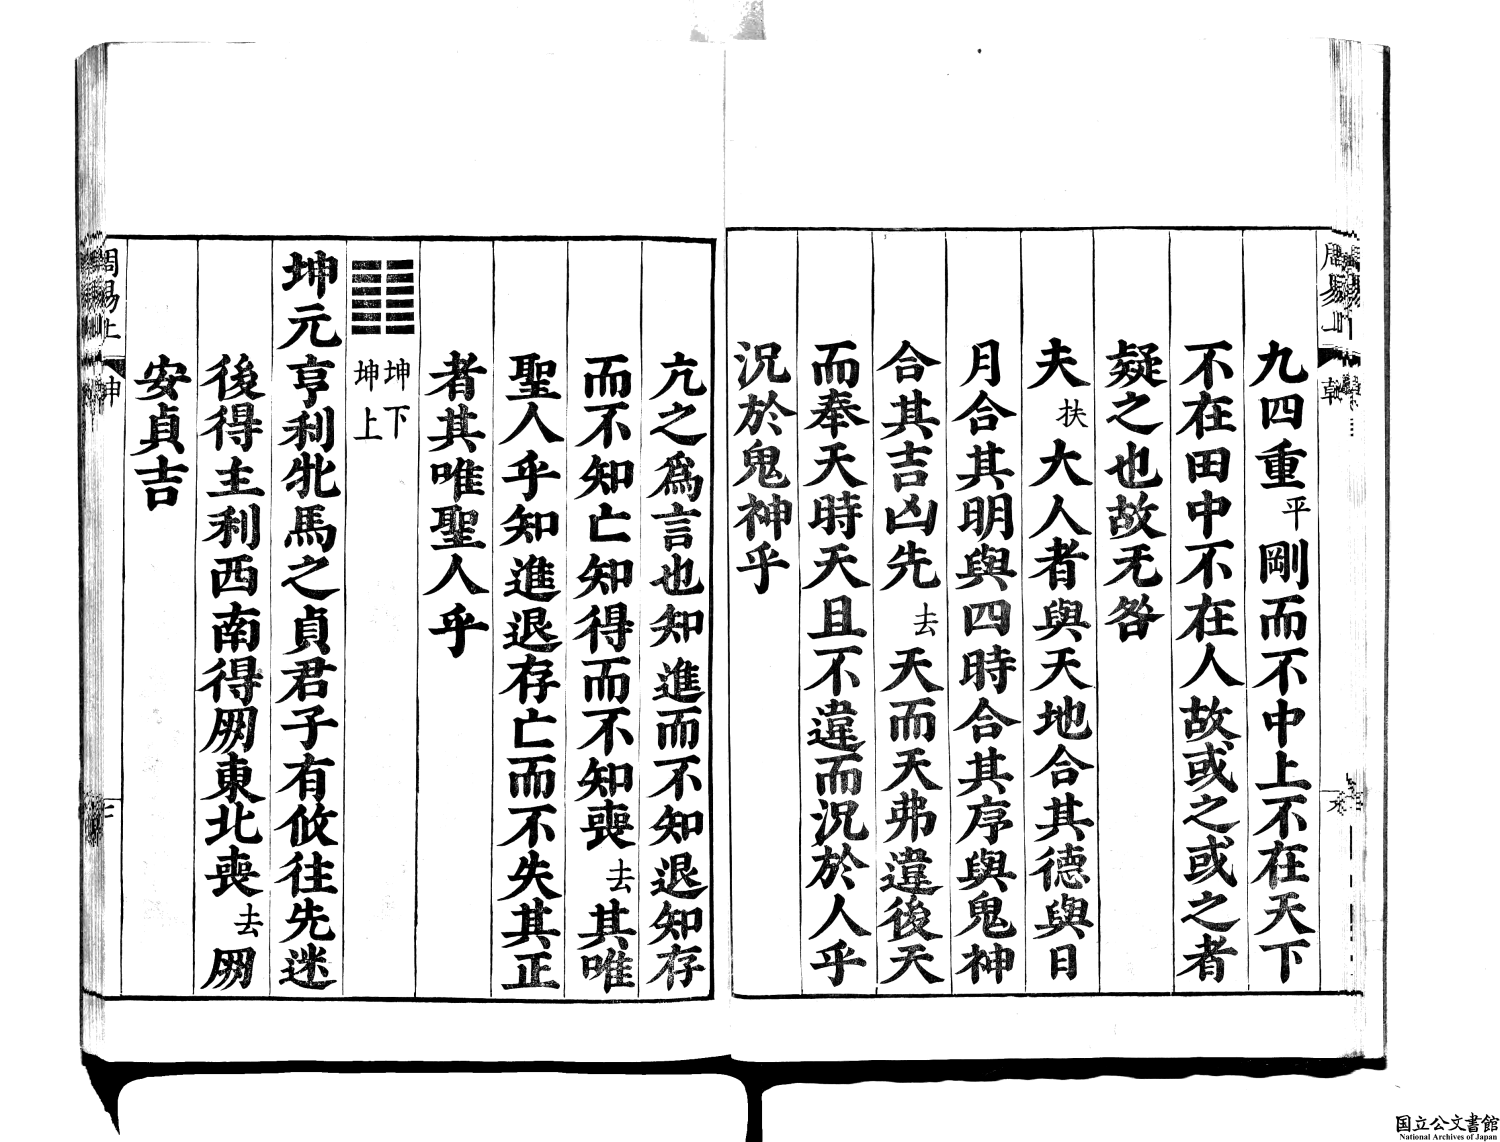 九四重平剛而不中上不在天下
不在田中不在人故或之或之者
疑之也故无咎
夫扶大人者與天地合其德與日
月合其明與四時合其序與鬼神
合其吉凶先去天而天弗違後天
而奉天時天且不違而況於人乎
況於鬼神乎
亢之爲言也知進而不知退知存
而不知亡知得而不知喪去其唯
聖人乎知進退存亡而不失其正
者其唯聖人乎
坤下
坤上
坤元亨利牝馬之貞君子有攸往先迷
後得主利西南得朋東北喪去朋
安貞吉
周易上
坤
国立公文書館
National Archives of Japan